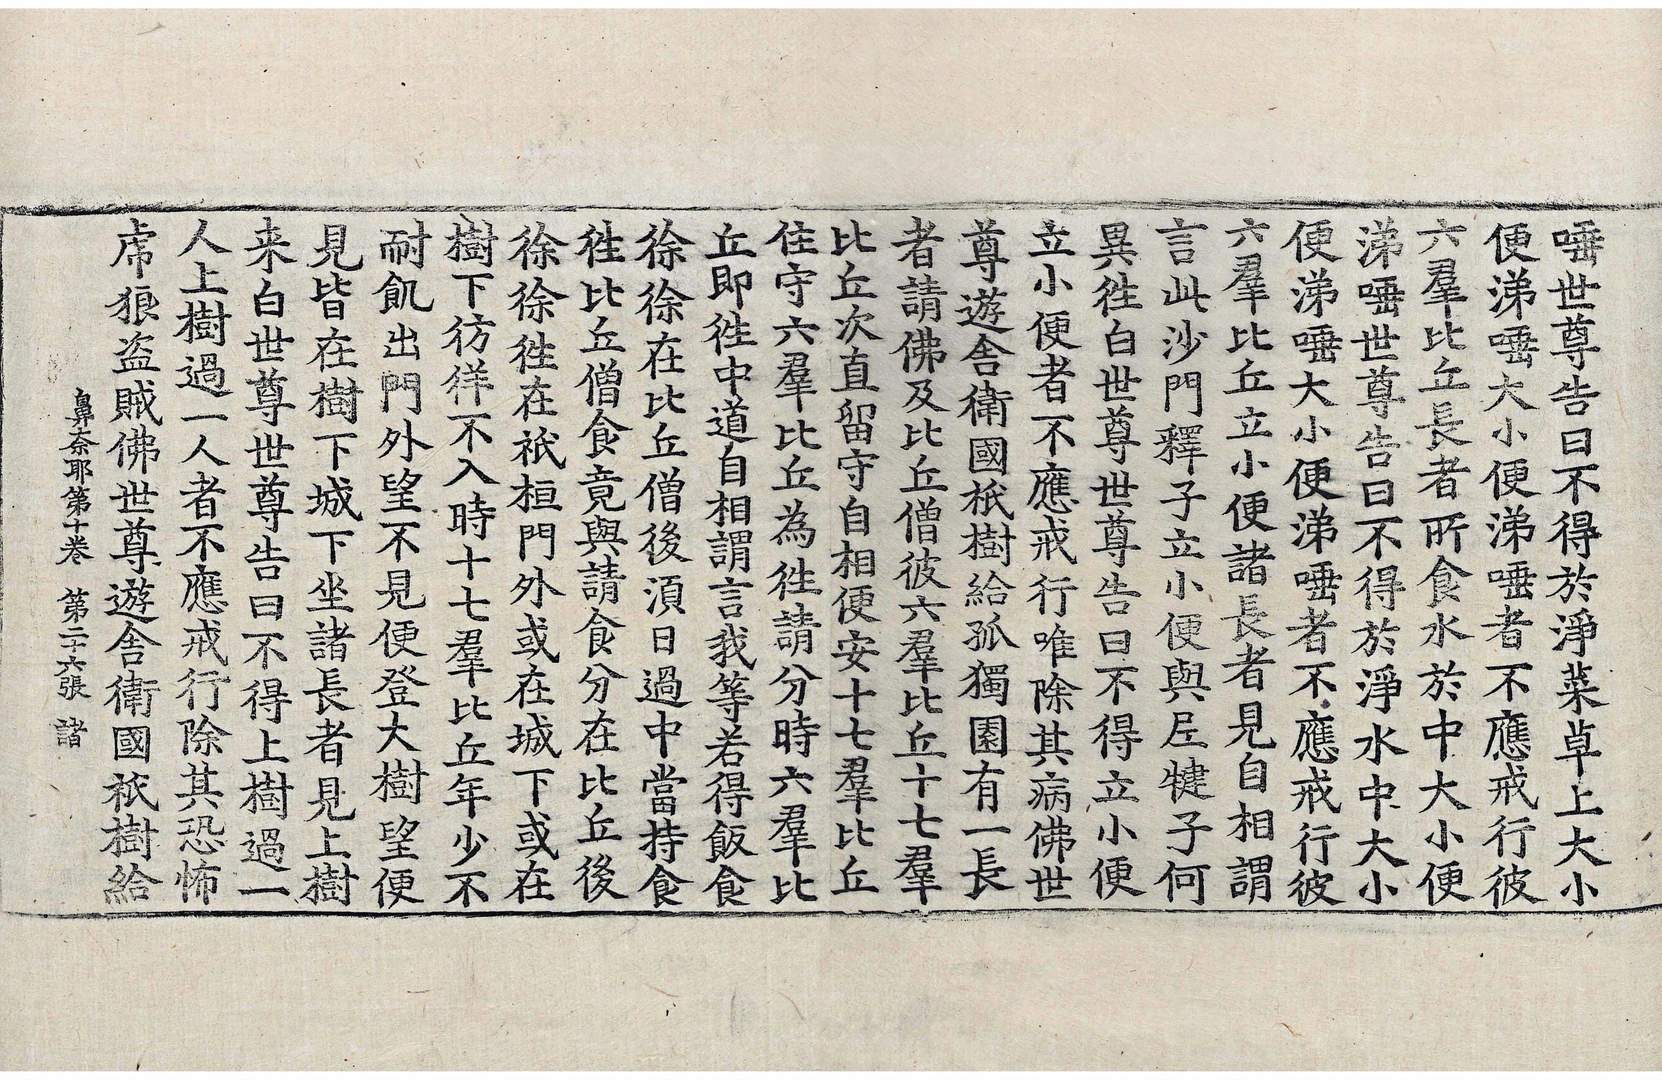 唾世尊告曰不得於淨菜草上大小
便涕唾大小便涕唾者不應戒行彼
六羣比丘長者所食水於中大小便
涕唾世尊告曰不得於淨水中大小
便涕唾大小便涕唾者不應戒行彼
六羣比丘立小便諸長者見自相謂
言此沙門釋子立小便與尼犍子何
異徃白世尊世尊告曰不得立小便
立小便者不應戒行唯除其病佛世
尊遊舎衛國祇樹給孤獨園有一長
者請佛及比丘僧彼六羣比丘十七羣
比丘次直留守自相便安十七羣比丘
住守六羣比丘為徃請分時六羣比
丘即徃中道自相謂言我等若得飯食
徐徐在比丘僧後湏日過中當持食
徃比丘僧食竟與請食分在比丘後
徐徐徃在祇桓門外或在城下或在
樹下彷徉不入時十七羣比丘年少不
耐飢出門外望不見便登大樹望便
見皆在樹下城下坐諸長者見上樹
来白世尊世尊告曰不得上樹過一
人上樹過一人者不應戒行除其恐怖
虎狼盗賊佛世尊遊舎衛國祇樹給
鼻奈耶第十卷 第二十六張 諸